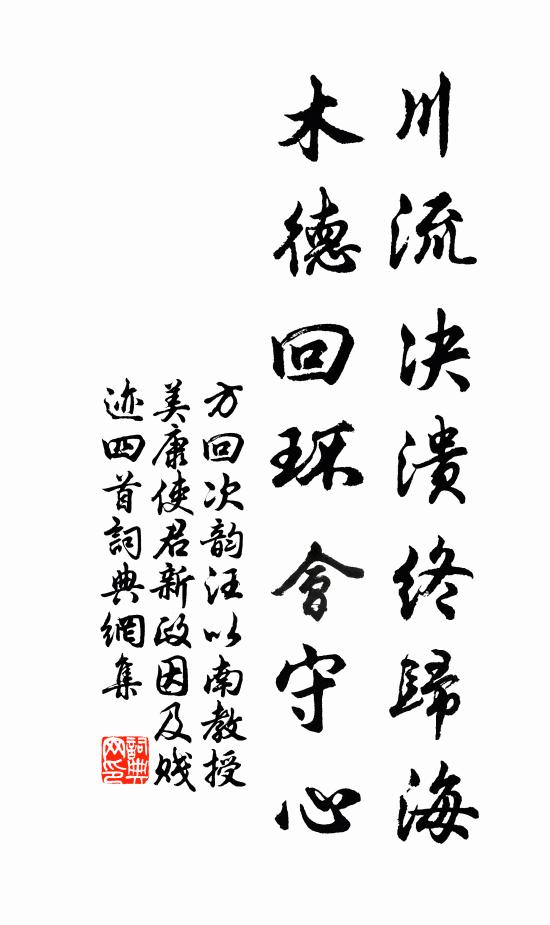 川流決潰終歸海
木德回环會守心
方回次韵汪以南教授
美康使君新政因及贱
迹四首詞典網集
詞典网印